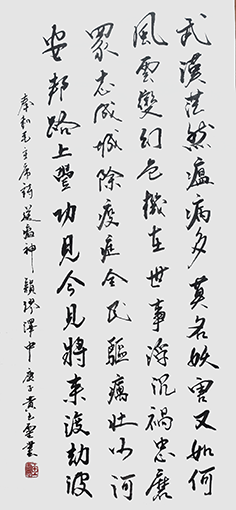 武漢茫然瘟病多莫名妖害又如何
風雲變幻危機在世事浮沉禍患磨
眾志成城除疫症全民驅癘壯山河
安邦路上豐功見今見將來渡劫波
奉和毛主席詩送瘟神 澤中 庚子 書